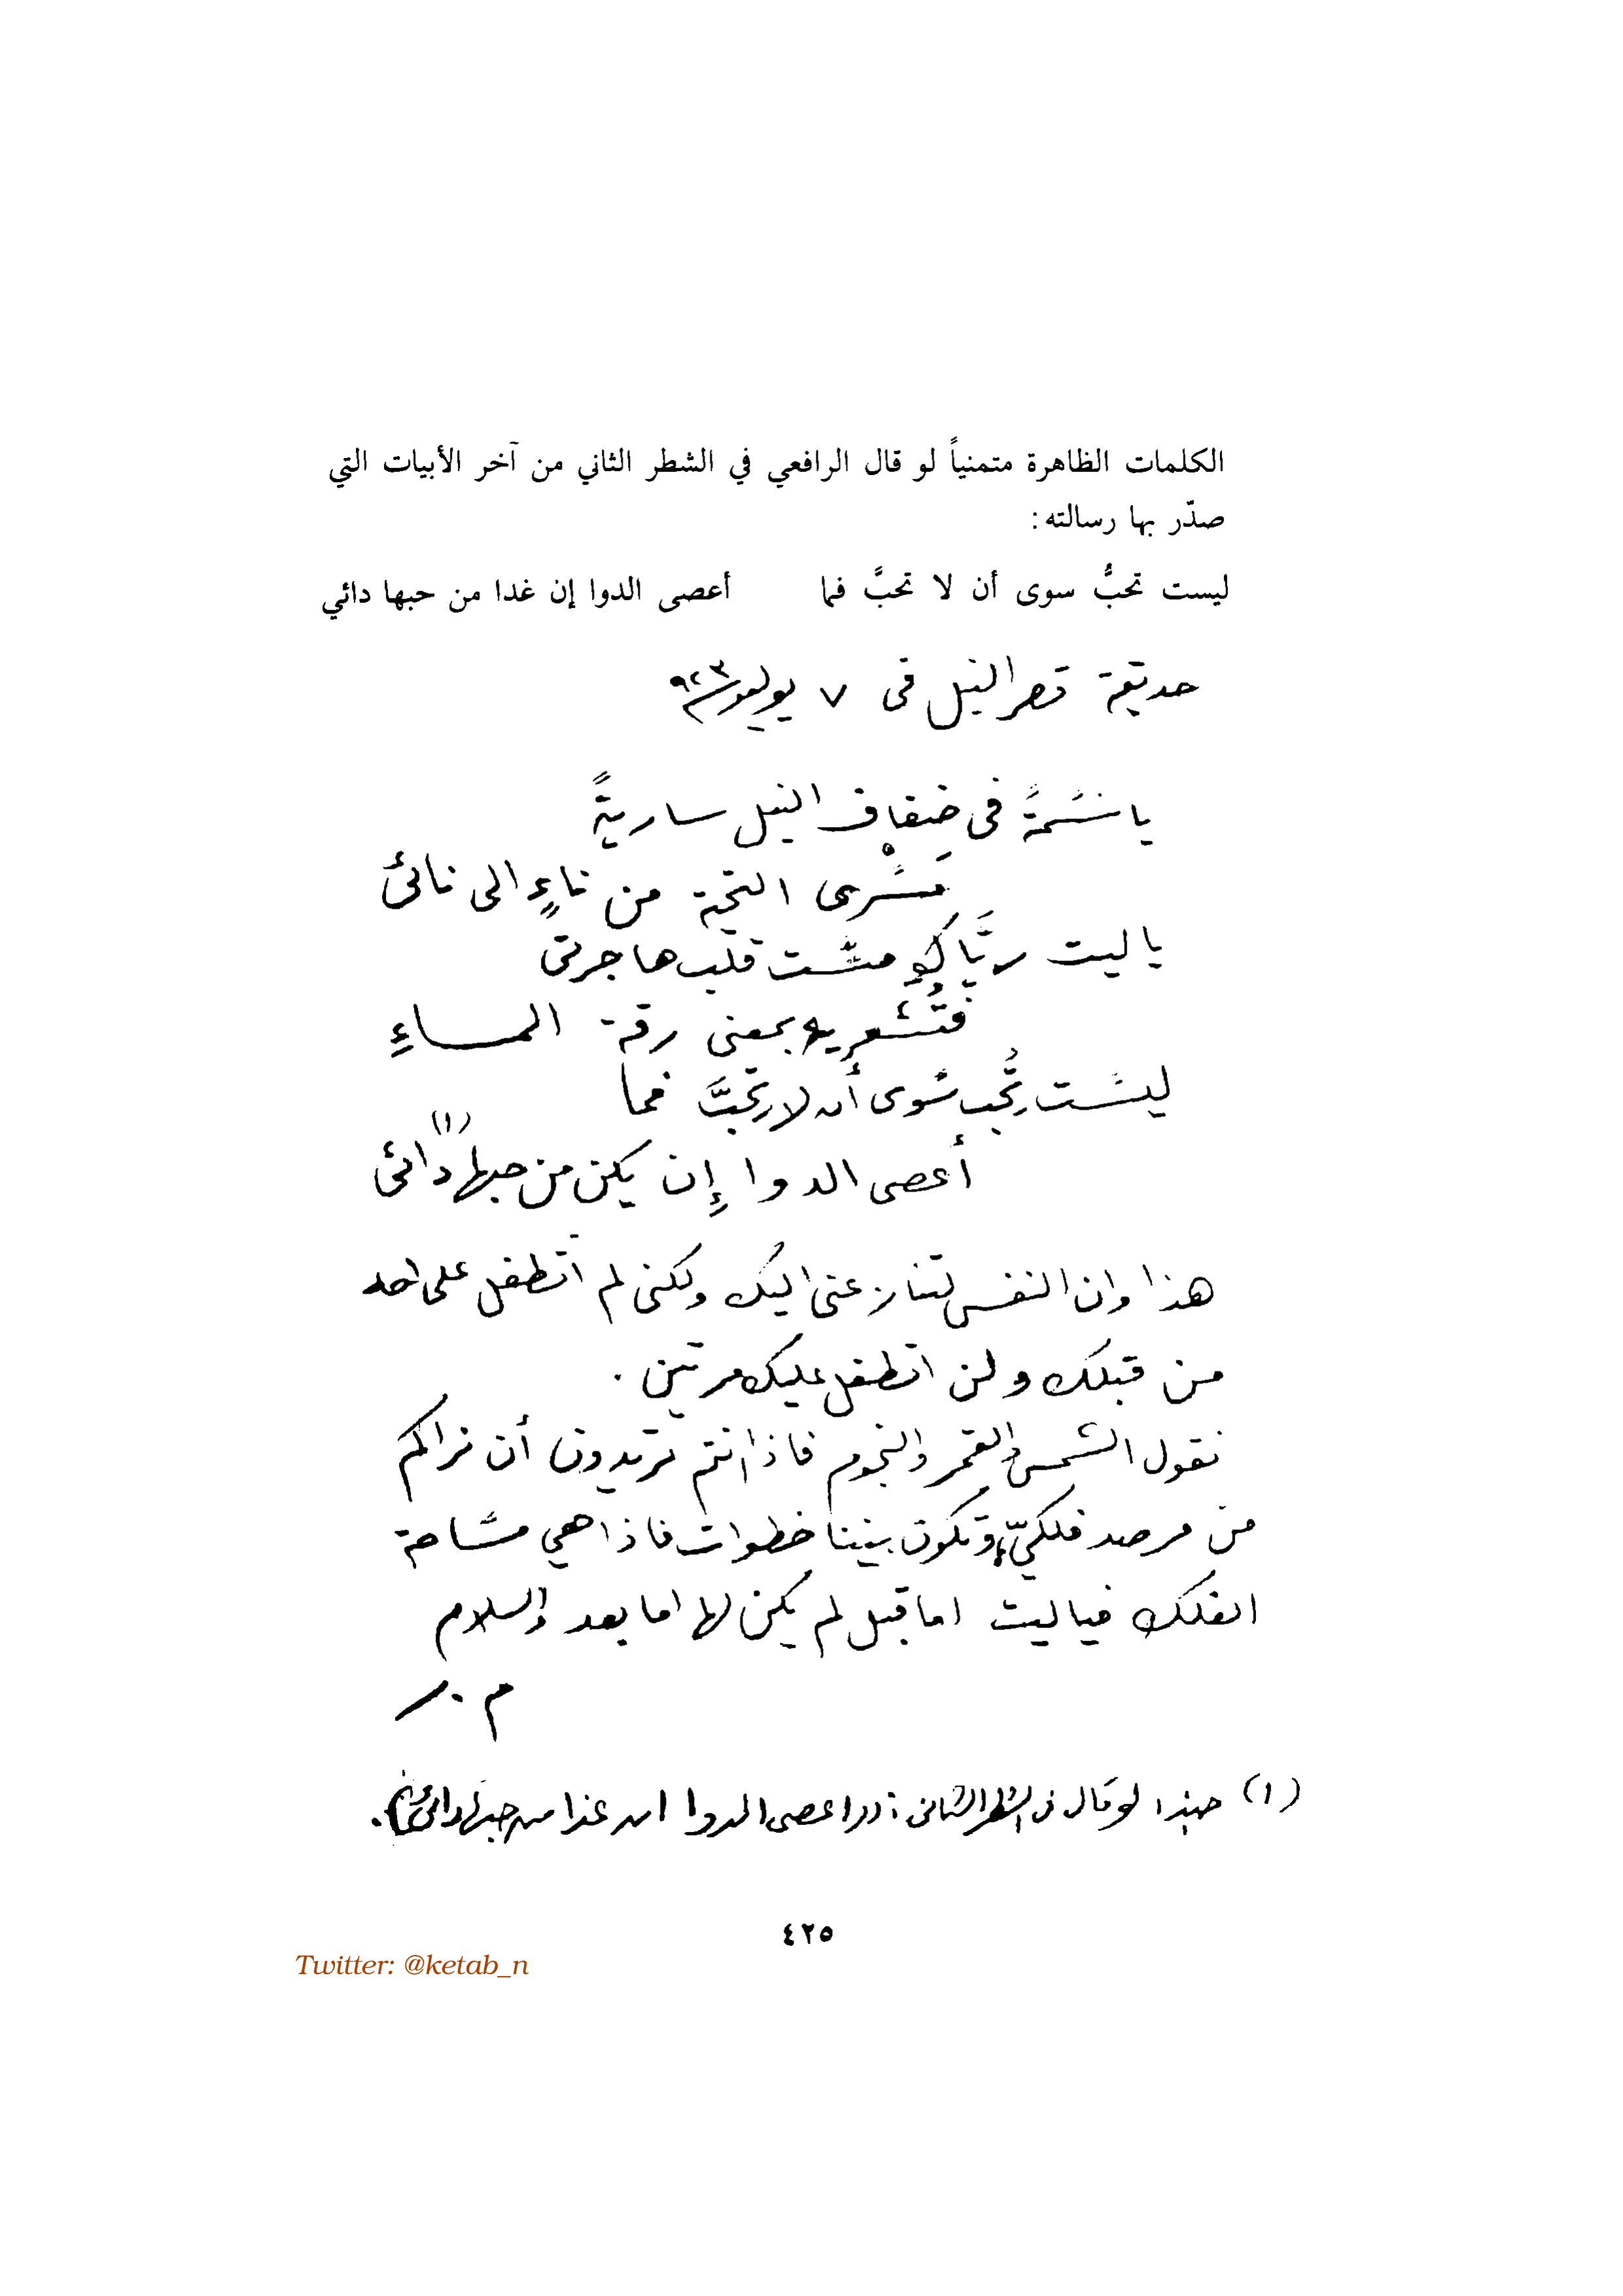 الكلمات الظاهرة متمنياً لو قال الرافعي في الشطر الثاني من آخر الأبيات التي
صدّر بها رسالته :
ليست تحبُّ سوى أن لا تحبَّ فما أعصى الدوا إن غدا من حبها دائي
حديقة قصر النيل فى ٧ يوليو ٩٢٣
يا نسمةً فى ضفاف النيل ساريةً
مَسْرى التحية من ناءٍ الى نائى
يا ليت ريَّاكِ مسّت قلب هاجرتى
فتُشعريه بمعنى رقة المــاءِ
ليست تُحب سوى أن لا تحبَّ فما
أعصى الدوا إِن يكن من حبها دائى (١)
هذا وان النفس لتنازعنى اليك ولكنى لم اتطفل على احد
من قبلك ولن اتطفل عليك مرتين .
نقول الشمس والقمر والنجوم فاذا انتم تريدون أن نراكم
من مرصد فلكيّ، وتكون بيننا خطوات فاذا هي مساحة
الفلك فياليت اما قبل لم يكن لها اما بعد والسلام
م . ر
(١) حبذا لو قال في الشطر الثانى : «اعصى الدوا ان غدا من حبها دائى» .
٤٢٥
Twitter: @ketab_n